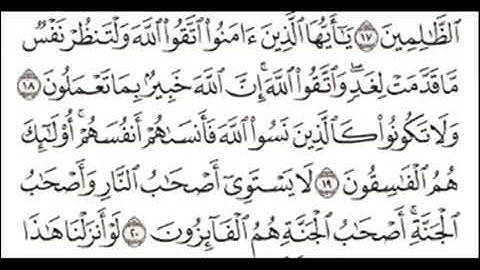 ٱلظَّٰلِمِينَ ١٧ يَٰٓأَيُّهَا ٱلَّذِينَ ءَامَنُوا۟ ٱتَّقُوا۟ ٱللَّهَ وَلْتَنظُرْ نَفْسٌ
مَّا قَدَّمَتْ لِغَدٍۖ وَٱتَّقُوا۟ ٱللَّهَۚ إِنَّ ٱللَّهَ خَبِيرٌۢ بِمَا تَعْمَلُونَ ١٨
وَلَا تَكُونُوا۟ كَٱلَّذِينَ نَسُوا۟ ٱللَّهَ فَأَنسَىٰهُمْ أَنفُسَهُمْۚ أُو۟لَٰٓئِكَ
هُمُ ٱلْفَٰسِقُونَ ١٩ لَا يَسْتَوِىٓ أَصْحَٰبُ ٱلنَّارِ وَأَصْحَٰبُ
ٱلْجَنَّةِۚ أَصْحَٰبُ ٱلْجَنَّةِ هُمُ ٱلْفَآئِزُونَ ٢٠ لَوْ أَنزَلْنَا هَٰذَا